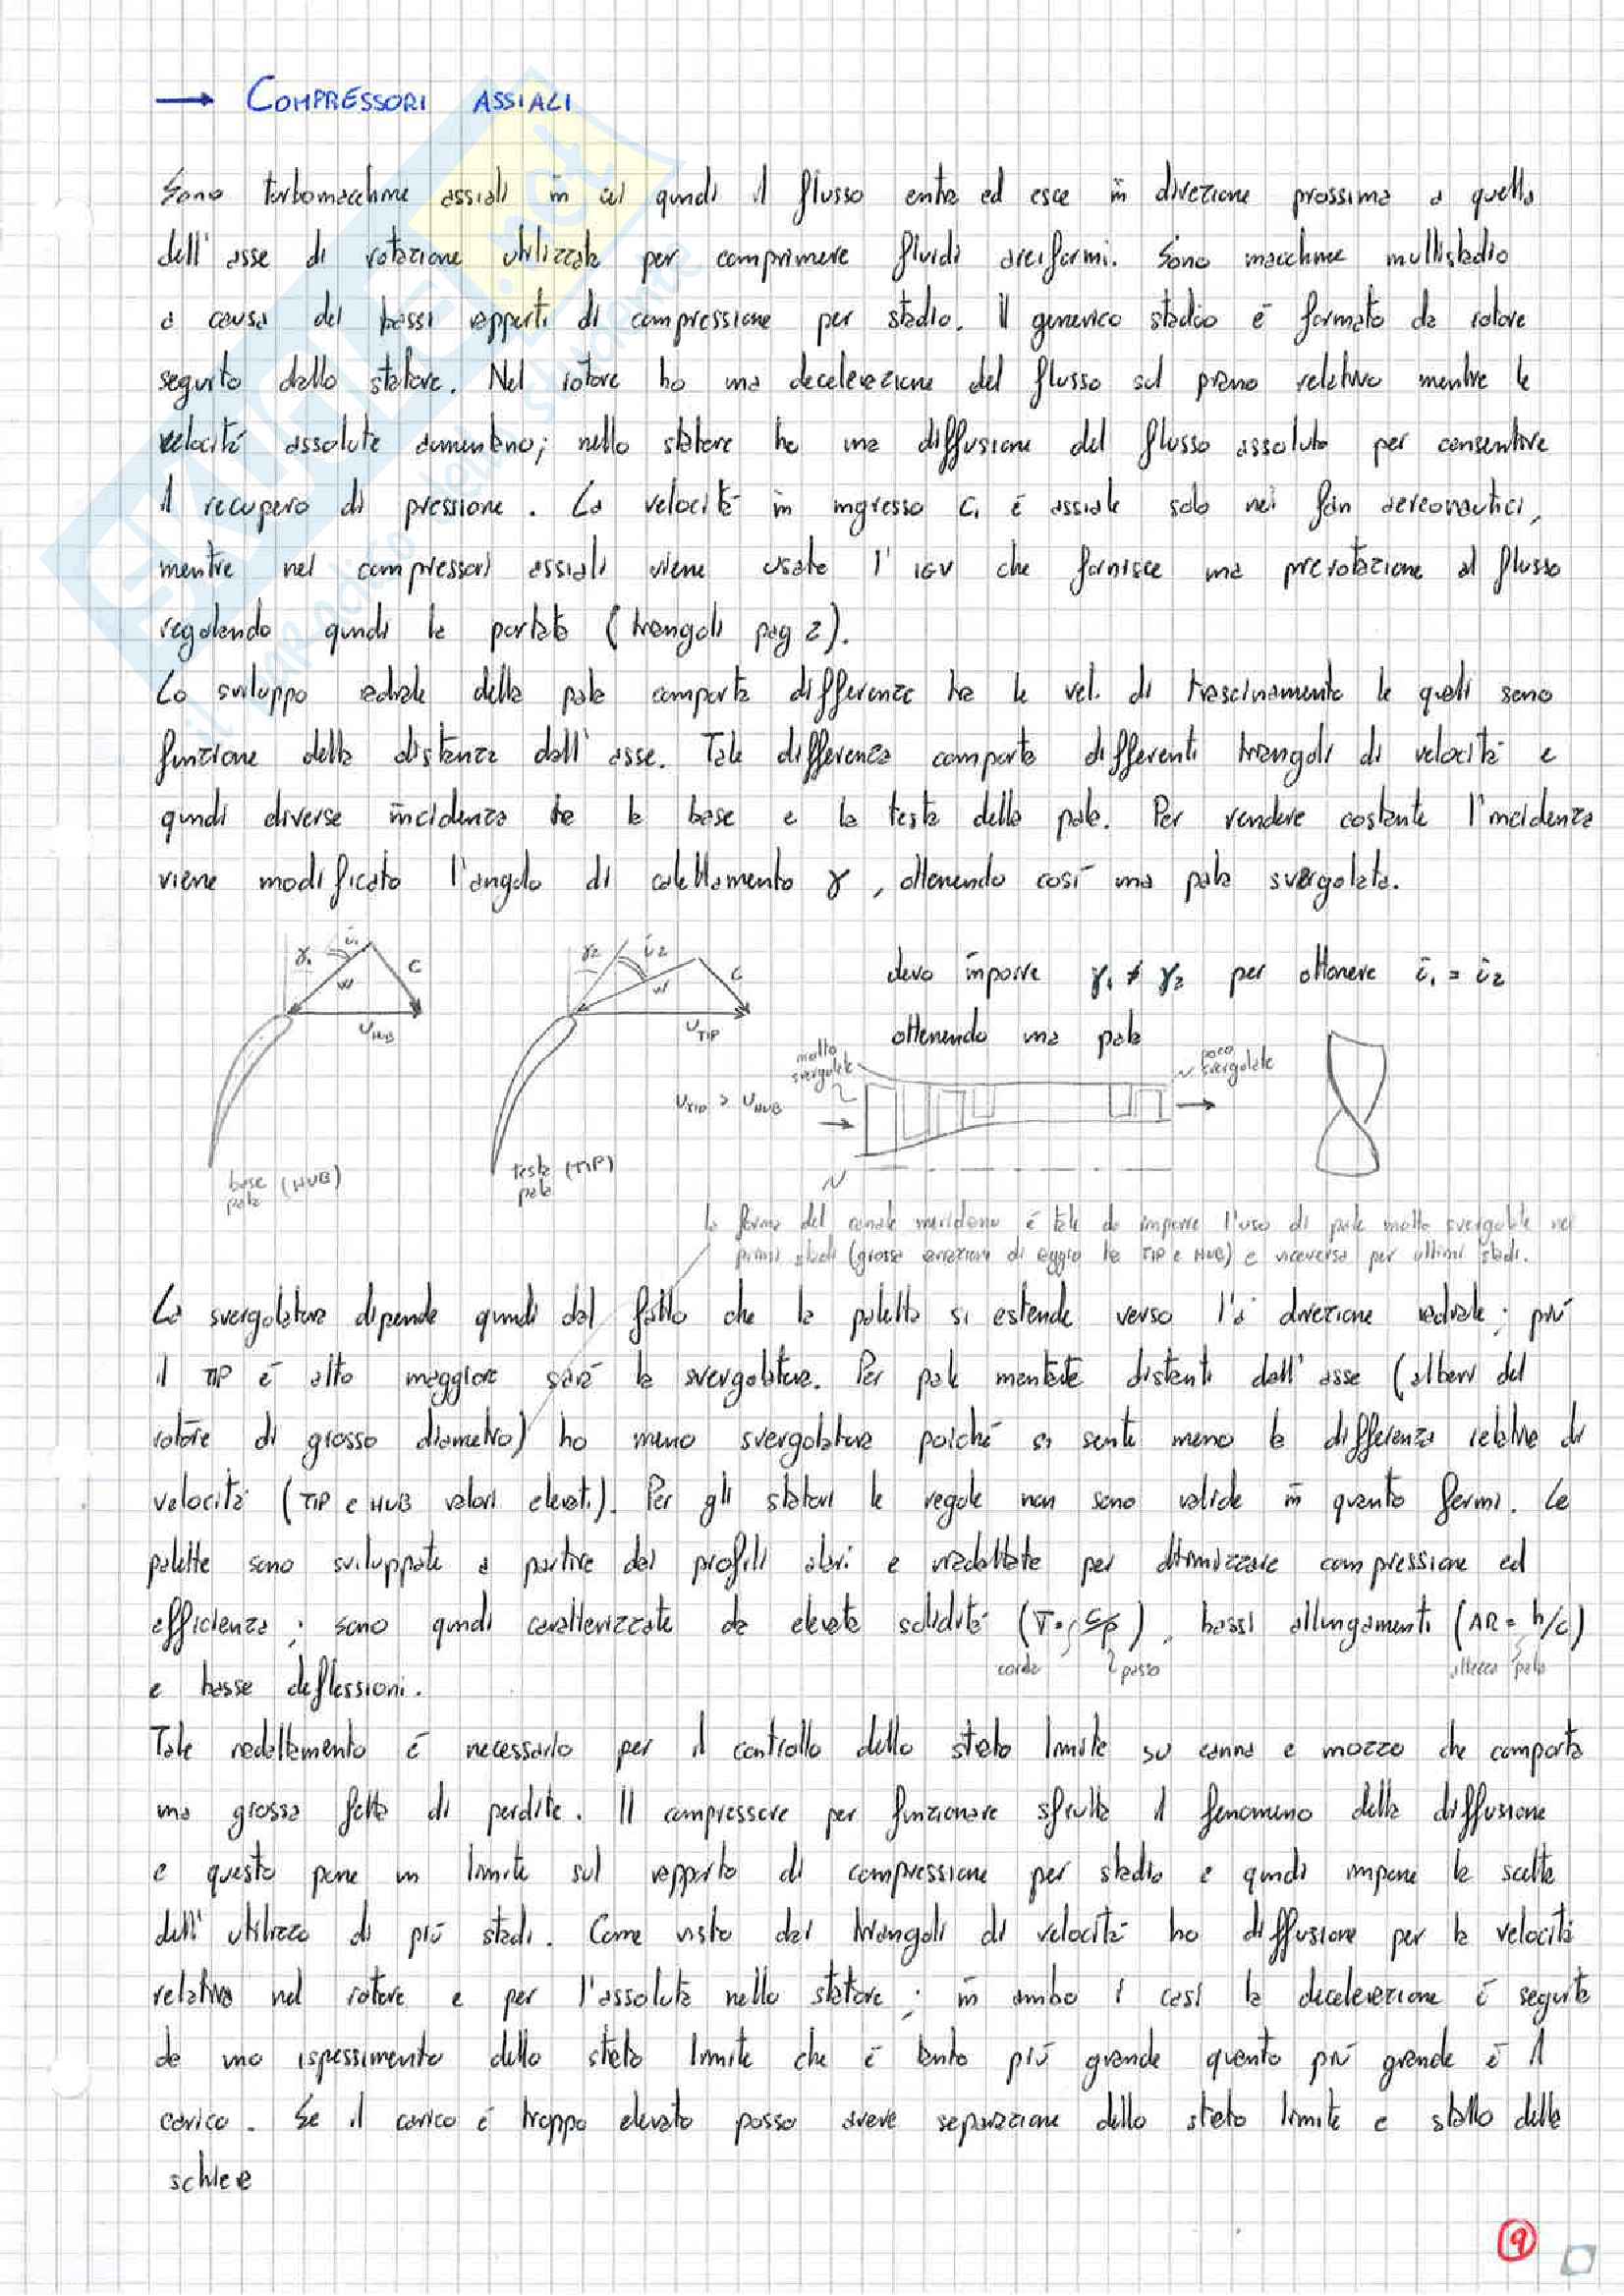 → COMPRESSORI ASSIALI
Sono turbomacchine assiali in cui quindi il flusso entra ed esce in direzione prossima a quella
dell'asse di rotazione utilizzate per comprimere fluidi areiformi. Sono macchine multistadio
a causa dei bassi rapporti di compressione per stadio. Il generico stadio è formato da rotore
seguito dallo statore. Nel rotore ho una decelerazione del flusso sul piano relativo mentre le
velocità assolute aumentano; nello statore ho una diffusione del flusso assoluto per consentire
il recupero di pressione. La velocità in ingresso C₁ è assiale solo nei fan aereonautici,
mentre nei compressori assiali viene usato l'IGV che fornisce una prerotazione al flusso
regolando quindi la portata (triangoli pag 2).
Lo sviluppo radiale della pala comporta differenze tra le vel. di trascinamento le quali sono
funzione della distanza dall'asse. Tale differenza comporta differenti triangoli di velocità e
quindi diverse incidenze tra la base e la testa della pala. Per rendere costante l'incidenza
viene modificato l'angolo di calettamento γ, ottenendo così una pala svergolata.
γ₁ i₁ w C U_HUB
base pala (HUB)
γ₂ i₂ w C U_TIP
testa pala (TIP)
devo imporre γ₁ ≠ γ₂ per ottenere i₁ = i₂
ottenendo una pala
molto svergolate
poco svergolate
U_TIP > U_HUB
la forma del canale meridiano è tale da imporre l'uso di pale molto svergolate nei
primi stadi (grossa variazione di raggio tra TIP e HUB) e viceversa per ultimi stadi.
La svergolatura dipende quindi dal fatto che la paletta si estende verso la direzione radiale; più
il TIP è alto maggiore sarà la svergolatura. Per pale montate distanti dall'asse (alberi del
rotore di grosso diametro) ho meno svergolatura poiché si sente meno la differenza relativa di
velocità (TIP e HUB valori elevati). Per gli statori le regole non sono valide in quanto fermi. Le
palette sono sviluppate a partire dai profili alari e riadattate per ottimizzare compressione ed
efficienza; sono quindi caratterizzate da elevata solidità (σ = c/p), bassi allungamenti (AR = h/c)
corda passo altezza pala
e basse deflessioni.
Tale riadattamento è necessario per il controllo dello strato limite su canna e mozzo che comporta
una grossa fetta di perdite. Il compressore per funzionare sfrutta il fenomeno della diffusione
e questo pone un limite sul rapporto di compressione per stadio e quindi impone la scelta
dell'utilizzo di più stadi. Come visto dai triangoli di velocità ho diffusione per la velocità
relativa nel rotore e per l'assoluta nello statore; in ambo i casi la decelerazione è seguita
da uno ispessimento dello strato limite che è tanto più grande quanto più grande è il
carico. Se il carico è troppo elevato posso avere separazione dello strato limite e stallo delle
schiere
9